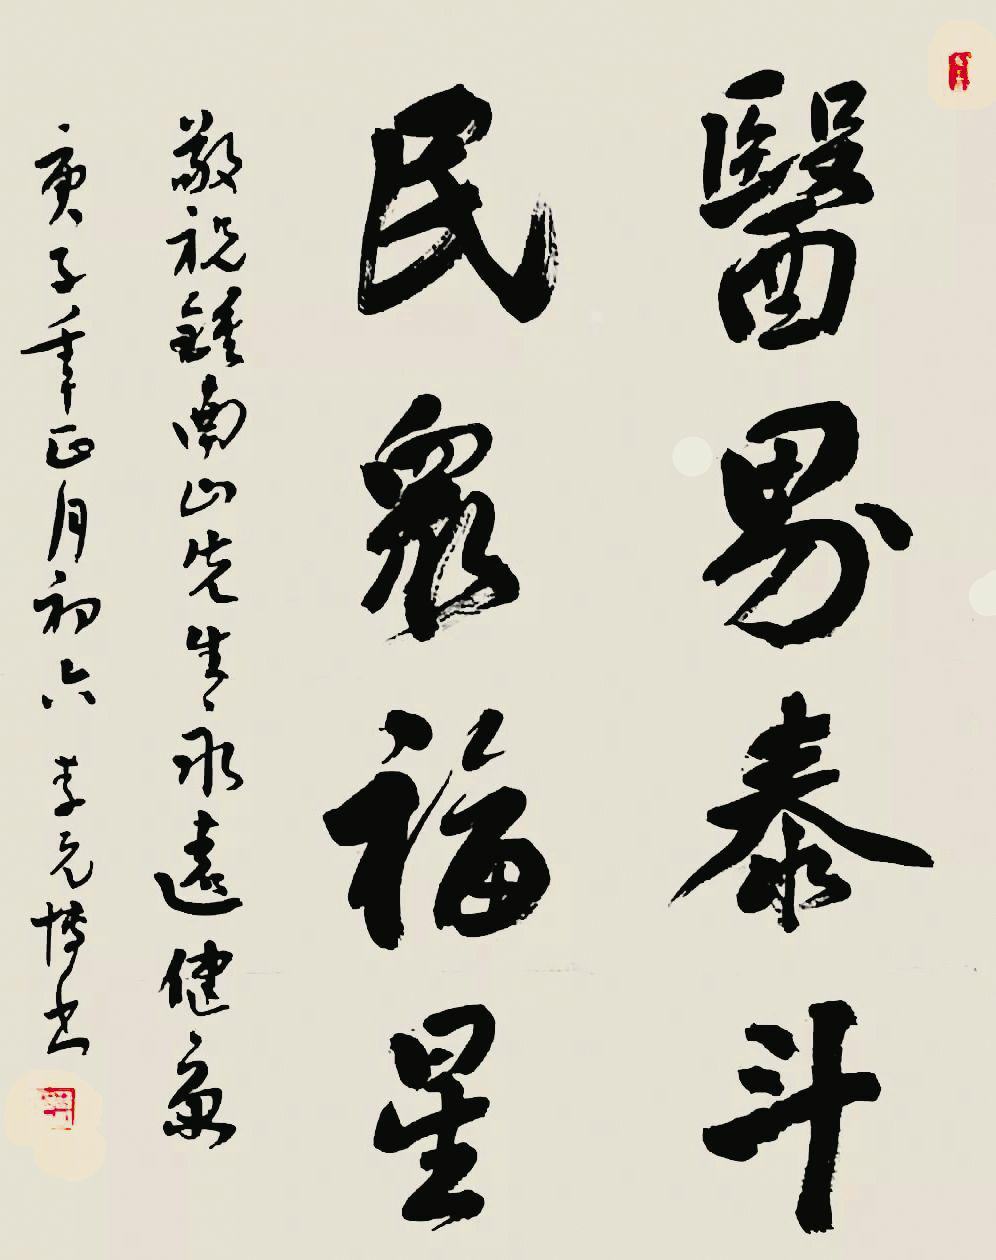 醫界泰斗
民眾福星
敬祝鍾南山先生永遠健康
庚子年正月初六 李元博书